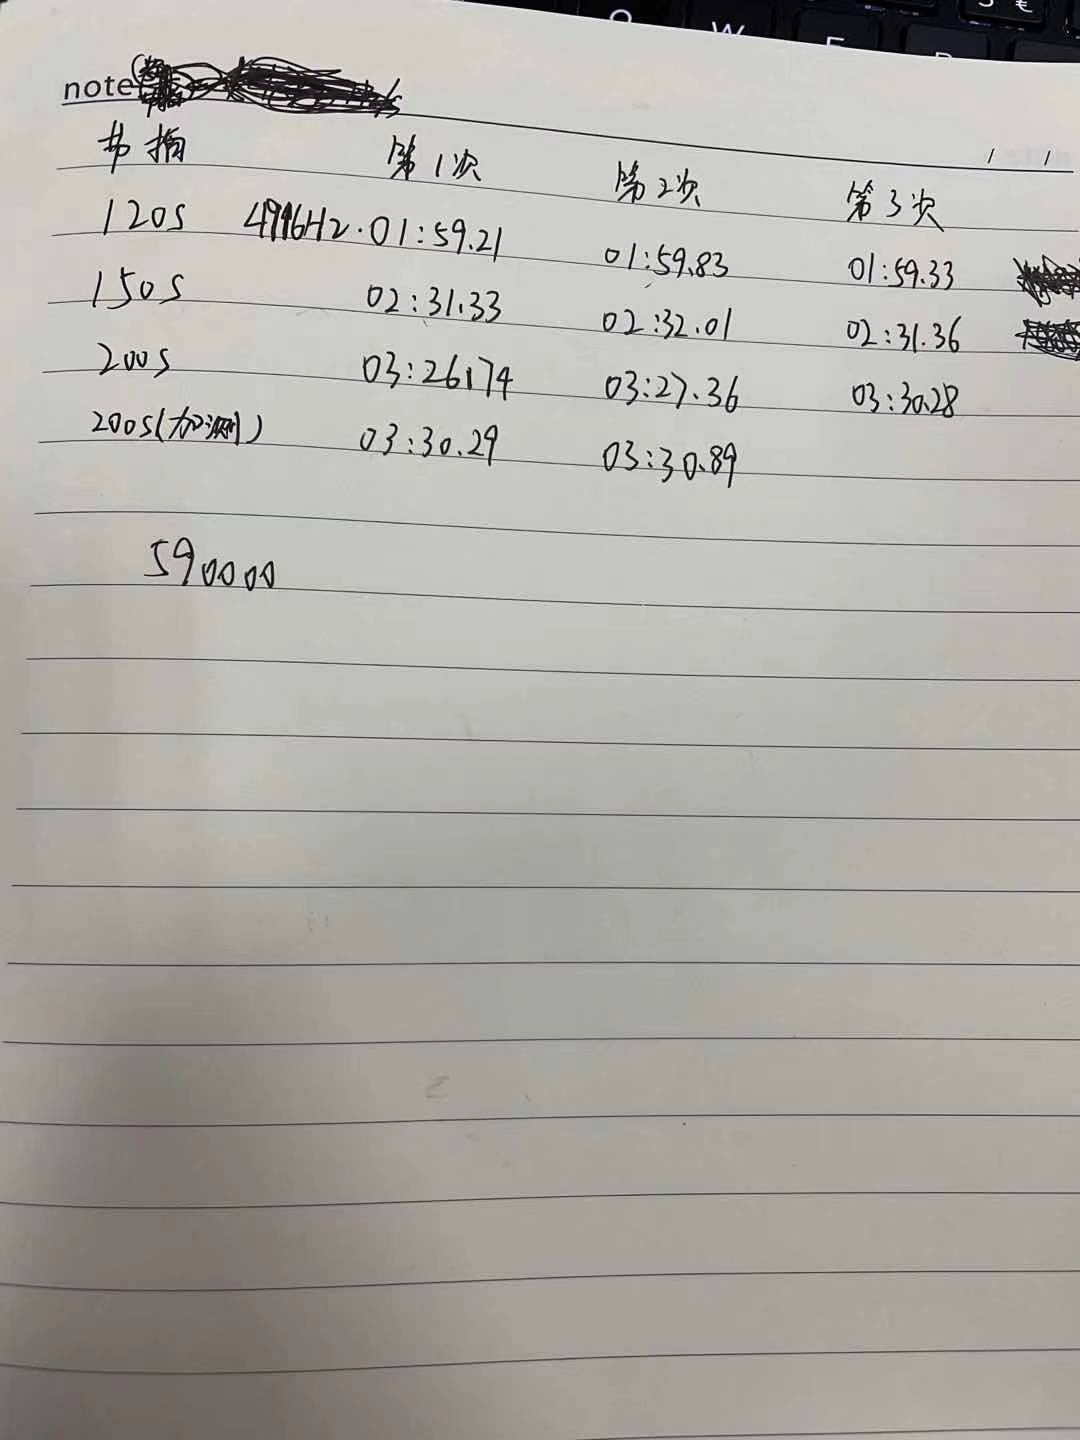 note
第1次 第2次 第3次
120s 4996Hz·01:59.21 01:59.83 01:59.33
150s 02:31.33 02:32.01 02:31.36
200s 03:26.174 03:27.36 03:30.28
200s(加测) 03:30.29 03:30.89
590000